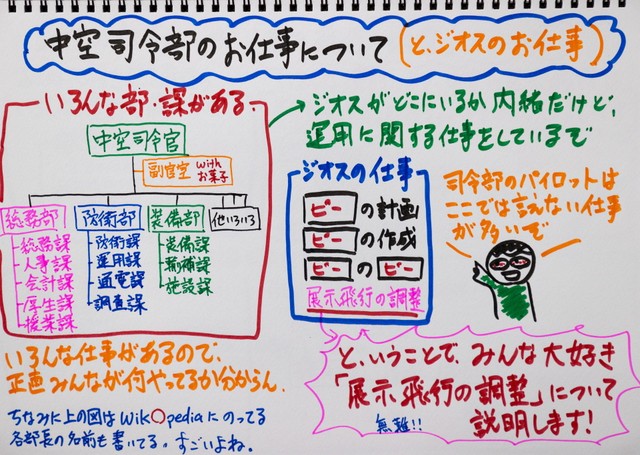 中空司令部のお仕事について（と、ジオスのお仕事）
いろんな部・課がある。
中空司令官
副官室 with お菓子
総務部
総務課
人事課
会計課
厚生課
援業課
防衛部
防衛課
運用課
通電課
調査課
装備部
装備課
補給課
施設課
他いろいろ
いろんな仕事があるので、
正直みんなが何やってるか分からん。
ちなみに上の図はWik〇pediaにのってる
各部長の名前も書いてる。すごいよね。
ジオスがどこにいるか内緒だけど、
運用に関する仕事をしているで
ジオスの仕事
ピーの計画
ピーの作成
ピーのピー
展示飛行の調整
司令部のパイロットは
ここでは言えない仕事
が多いで
と、いうことで、みんな大好き
「展示飛行の調整」について
説明します！
無難!!